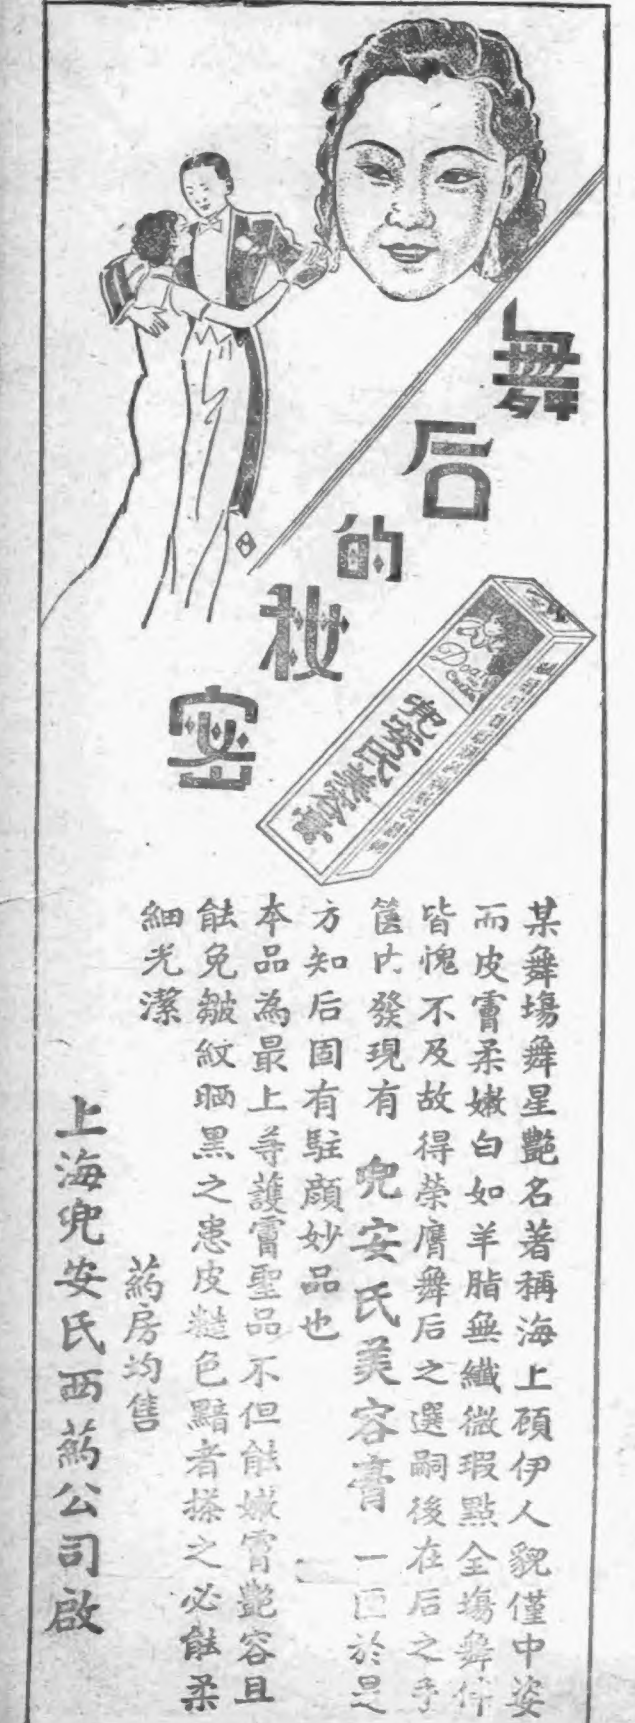 舞后的秘密
兜安氏美容膏
某舞場舞星艷名著稱海上頋伊人貌僅中姿
而皮膚柔嫩白如羊脂無纖微瑕點全場舞伴
皆愧不及故得榮膺舞后之選嗣後在后之手
篋内發現有 兜安氏美容膏 一匣於是
方知后固有駐顔妙品也
本品為最上等護膚聖品不但能嫩膚艷容且
能免皺紋晒黑之患皮糙色黯者搽之必能柔
細光潔
葯房均售
上海兜安氏西葯公司啟